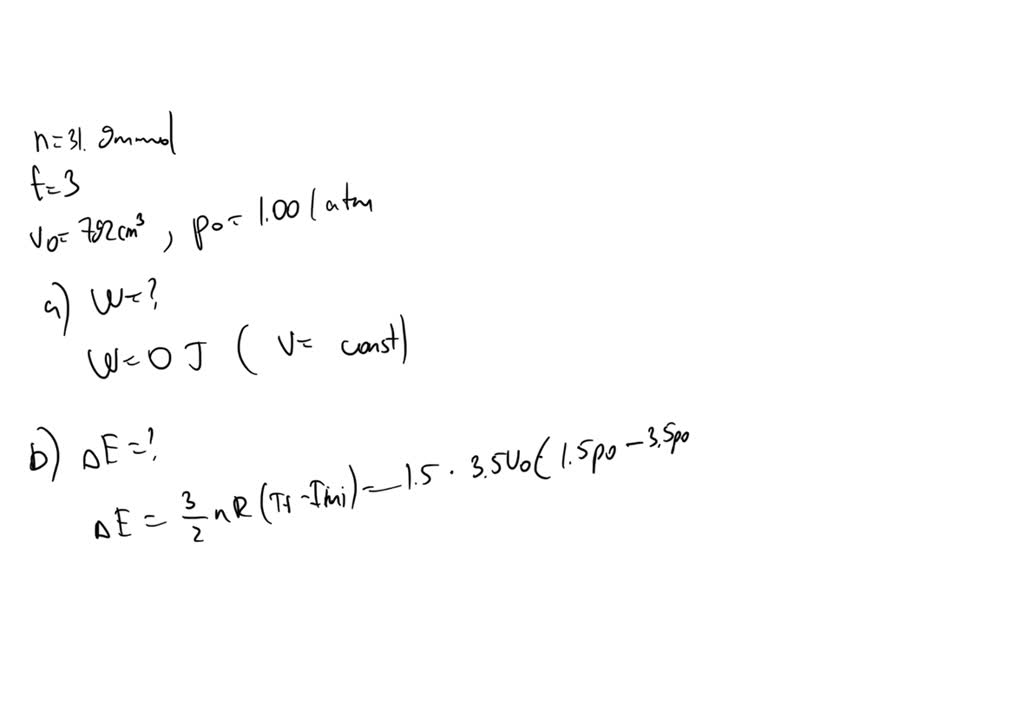 n=31.9mmol
f=3
V0=792cm³, p0=1.001atm
a) W=?
W=0 J ( V= const)
b) ΔE=?
ΔE = 3/2 nR (Tf - Tini) = 1.5 · 3.5V0( 1.5p0 - 3.5p0